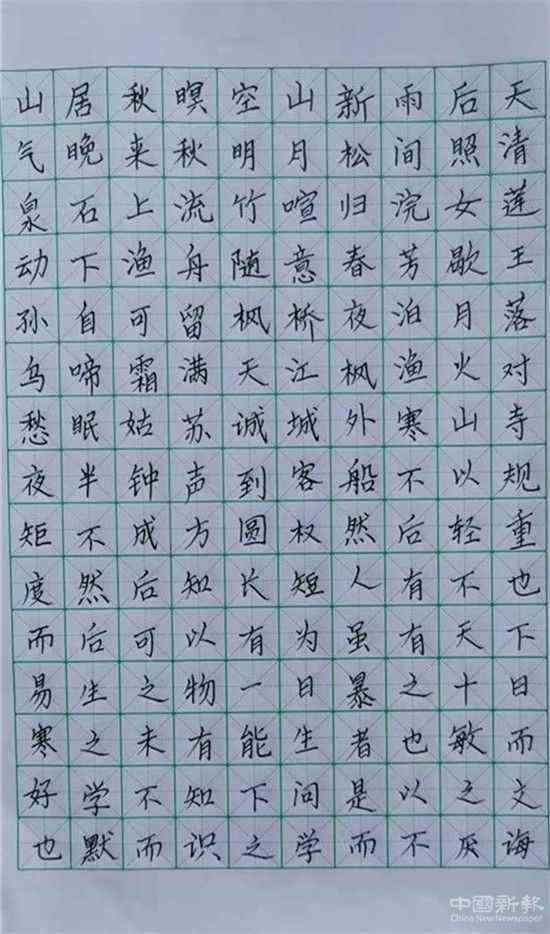 山居秋暝空山新雨后天
气晚来秋明月松间照清
泉石上流竹喧归浣女莲
动下渔舟随意春芳歇王
孙自可留枫桥夜泊月落
乌啼霜满天江枫渔火对
愁眠姑苏诚城外寒山寺
夜半钟声到客船不以规
矩不成方圆权然后轻重
度然后知长短人有不也
而后可以有为虽有天下
易生之物一日暴之十日
寒之未有能生者也敏而
好学不知下问是以之文
也默而识之学而不厌诲
中國新報
China New Newspaper